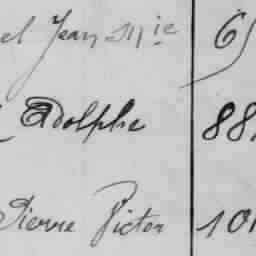 el Jean Mie 6
Adolphe 88
Pierre Victor 101